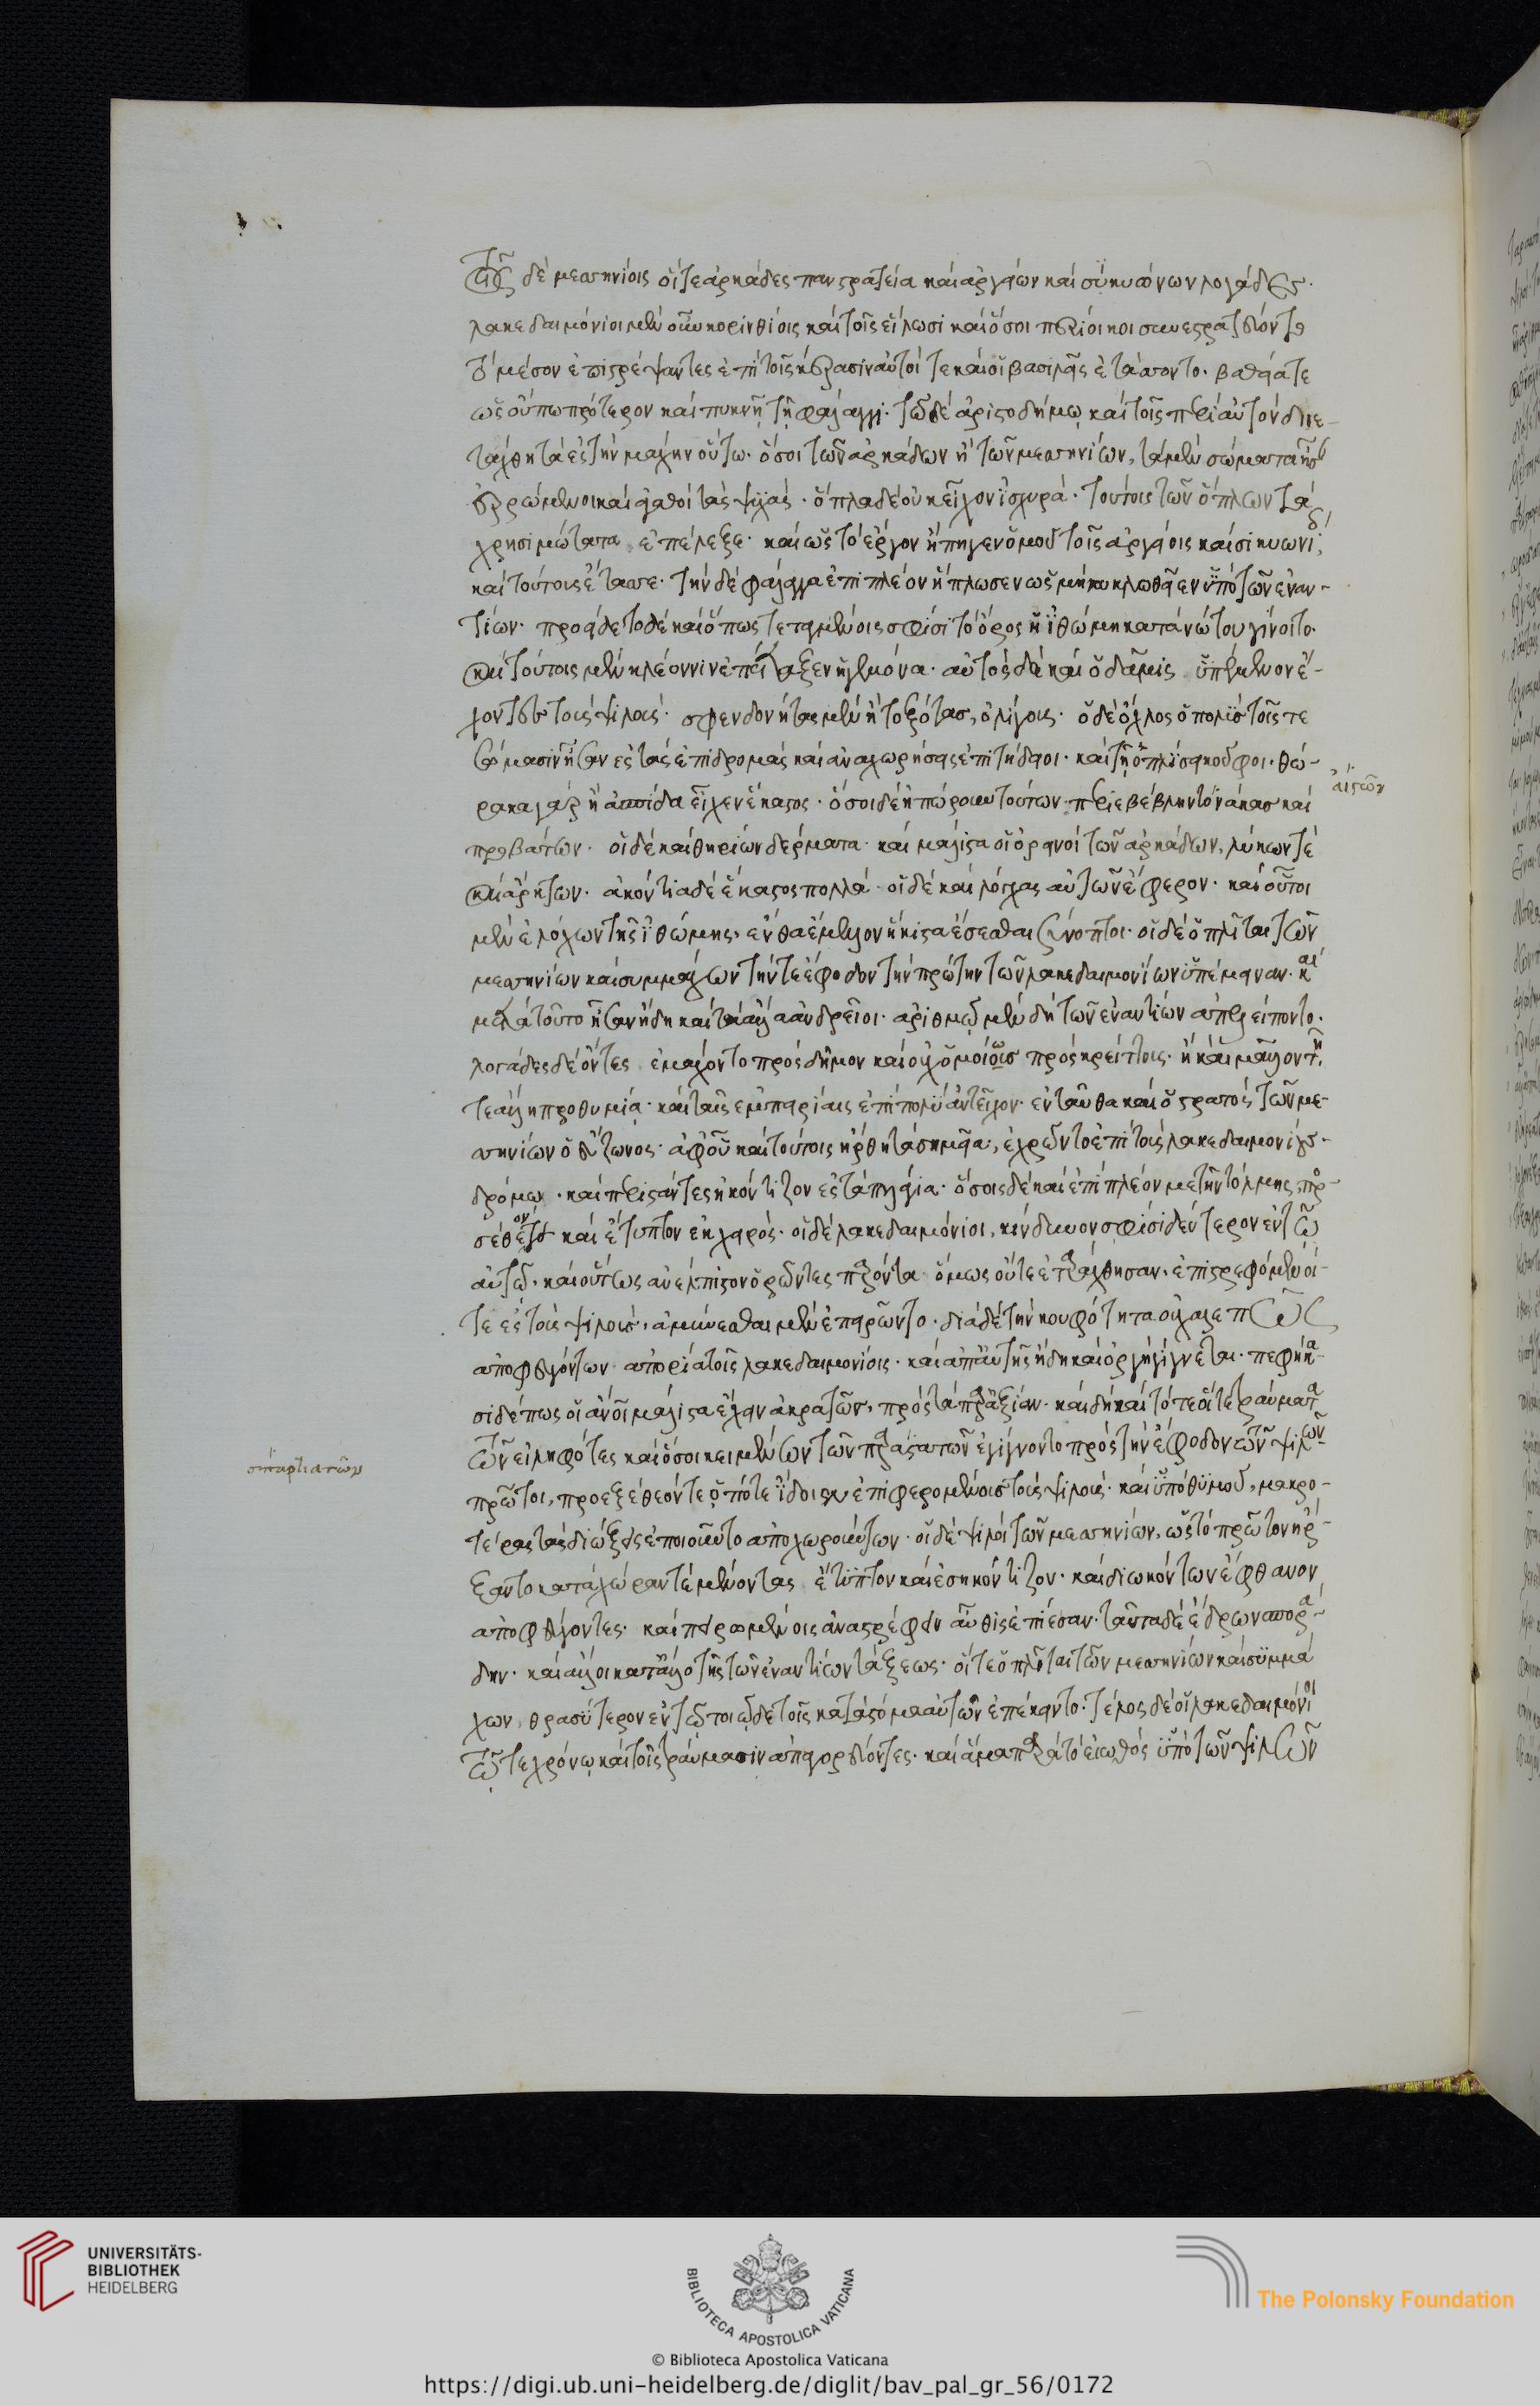 τοῖς δὲ μεσσηνίοις οἵ τε ἀρκάδες πανστρατεία καὶ ἀργείων καὶ σύκυωνων λογάδες·
λακεδαιμόνιοι μὲν οὖν κορινθίοις καὶ τοῖς εἵλωσι καὶ ὅσοι περίοικοι συνεστρατεύοντο
τὸ μέσον ἐπιστρέψαντες ἐπὶ τοῖς κέρασιν αὐτοί τε καὶ οἱ βασιλεῖς ἐτάσσοντο· βαθεῖά τε
ὡς οὔπω πρότερον καὶ πυκνῇ τῇ φάλαγγι· τῷ δὲ ἀριστοδήμῳ καὶ τοῖς περὶ αὐτὸν διε-
τάχθη τὰ ἐς τὴν μάχην οὕτω· ὅσοι τῶν ἀρκάδων ἢ τῶν μεσσηνίων, τὰ μὲν σώματα ἦσαν
ἐρρωμένοι καὶ ἀγαθοὶ τὰς ψυχὰς· ὅπλα δὲ οὐκ εἶχον ἰσχυρά· τούτοις τῶν ὅπλων τὰ
χρησιμώτατα ἐπέλεξε· καὶ ὡς τὸ ἔργον ἤπειγεν ὁμοῦ τοῖς ἀργείοις καὶ σικυωνίοις
καὶ τούτοις ἔτασσε· τὴν δὲ φάλαγγα ἐπὶ πλέον ἥπλωσεν ὡς μὴ κυκλωθεῖεν ὑπὸ τῶν ἐναν-
τίων· προείδετο δὲ καὶ ὅπως τεταγμένοις σφίσι τὸ ὄρος ἡ ἰθώμη κατὰ νώτου γίνοιτο·
καὶ τούτοις μὲν κλέοννιν ἐπέταξεν ἡγεμόνα· αὐτὸς δὲ καὶ ὁ δᾶμις ὑπέμενον ἔ-
χοντες τοὺς ψιλοὺς· σφενδονήτας μὲν ἢ τοξότας, ὀλίγοις· ὁ δὲ ὄχλος ὁ πολὺς τοῖς τε
σώμασιν ἦσαν ἐς τὰς ἐπιδρομὰς καὶ ἀναχωρήσεις ἐπιτήδειοι· καὶ τῇ ὁπλίσει κοῦφοι· θώ-
αἰγῶν
ρακα γὰρ ἢ ἀσπίδα εἶχεν ἕκαστος· ὅσοι δὲ ἠπόρουν τούτων περιεβέβληντο νάκας καὶ
προβάτων· οἱ δὲ καὶ θηρίων δέρματα· καὶ μάλιστα οἱ ὀρεινοὶ τῶν ἀρκάδων, λύκων τέ
καὶ ἄρκτων· ἀκόντια δὲ ἕκαστος πολλά· οἱ δὲ καὶ λόγχας αὐτῶν ἔφερον· καὶ οὗτοι
μὲν ἐλόχων τῆς ἰθώμης, ἔνθα ἔμελλον ἥκιστα ἔσεσθαι σύνοπτοι· οἱ δὲ ὁπλῖται τῶν
μεσσηνίων καὶ συμμάχων τήν τε ἔφοδον τὴν πρώτην τῶν λακεδαιμονίων ὑπέμειναν· καὶ
μετὰ τοῦτο ἦσαν ἤδη καὶ τὰ ἄλλα ἀνδρεῖοι· ἀριθμῷ μὲν δὴ τῶν ἐναντίων ἀπελείποντο·
λογάδες δὲ ὄντες ἐμάχοντο πρὸς δῆμον καὶ οὐχ ὁμοίοις πρὸς κρείττοις· ἢ καὶ μᾶλλον τῇ
τε ἄλλῃ προθυμίᾳ· καὶ ταῖς ἐμπειρίαις ἐπὶ πολὺ ἀντεῖχον· ἐνταῦθα καὶ ὁ στρατὸς τῶν με-
σσηνίων ὁ εὔζωνος· ἀφ' οὗ καὶ τούτοις ἤρθη τὰ σημεῖα, ἐχρῶντο ἐπὶ τοὺς λακεδαιμονίους·
δρόμῳ· καὶ περιστάντες ἠκόντιζον ἐς τὰ πλάγια· ὅσοις δὲ καὶ ἐπὶ πλέον μετῆν τόλμης, προ-
σέθεον τε καὶ ἔτυπτον ἐκ χειρός· οἱ δὲ λακεδαιμόνιοι, κίνδυνον σφίσι δεύτερον ἐν τῷ
αὐτῷ, καὶ οὕτως ἀνέλπιστον ὁρῶντες παρόντα ὅμως οὔτε ἐταράχθησαν, ἐπιστρεφόμενοί
τε ἐς τοὺς ψιλοὺς, ἀμύνεσθαι μὲν ἐπειρῶντο· διὰ δὲ τὴν κουφότητα οὐ χαλεπῶς
ἀποφευγόντων ἀπορία τοῖς λακεδαιμονίοις· καὶ ἀπ' αὐτῆς ἤδη καὶ ὀργὴ γίγνεται· πεφύκα-
σι δέ πως οἱ ἄνοι μάλιστα ἔχειν ἀκρατῶς, πρὸς τὰ παρ' ἀξίαν· καὶ δὴ καὶ τότε οἵ τε τραύματα
σπαρτιατῶν
τῶν εἰληφότες καὶ ὅσοι κειμένων τῶν παραστατῶν ἐγίγνοντο πρὸς τὴν ἔφοδον τῶν ψιλῶν
πρῶτοι, προεξέθεόν τε ὁπότε ἴδοιεν ἐπιφερομένους τοὺς ψιλοὺς· καὶ ὑπὸ θυμοῦ, μακρο-
τέρας τὰς διώξεις ἐποιοῦντο ἀποχωρούντων· οἱ δὲ ψιλοὶ τῶν μεσσηνίων, ὡς τὸ πρῶτον ἤρ-
ξαντο κατὰ χώραν τε μένοντας ἔτυπτον καὶ ἐσηκόντιζον· καὶ διωκόντων ἔφθανον
ἀποφεύγοντες· καὶ πειρωμένοις ἀναστρέφειν αὖθις ἐπῄεσαν· ταῦτα δὲ ἔδρων σπορά-
δην· καὶ ἄλλοι κατ' ἄλλο τῆς τῶν ἐναντίων τάξεως· οἵ τε ὁπλῖται τῶν μεσσηνίων καὶ συμμά
χων, θρασύτερον ἐν τῷ τοιῷδε τοῖς κατὰ στόμα αὐτῶν ἐπέκειντο· τέλος δὲ οἱ λακεδαιμόνιοι
τῷ τε χρόνῳ καὶ τοῖς τραύμασιν ἀπαγορεύοντες· καὶ ἅμα παρὰ τὸ εἰωθὸς ὑπὸ τῶν ψιλῶν
UNIVERSITÄTS-
BIBLIOTHEK
HEIDELBERG
BIBLIOTECA APOSTOLICA VATICANA
The Polonsky Foundation
© Biblioteca Apostolica Vaticana
https://digi.ub.uni-heidelberg.de/diglit/bav_pal_gr_56/0172